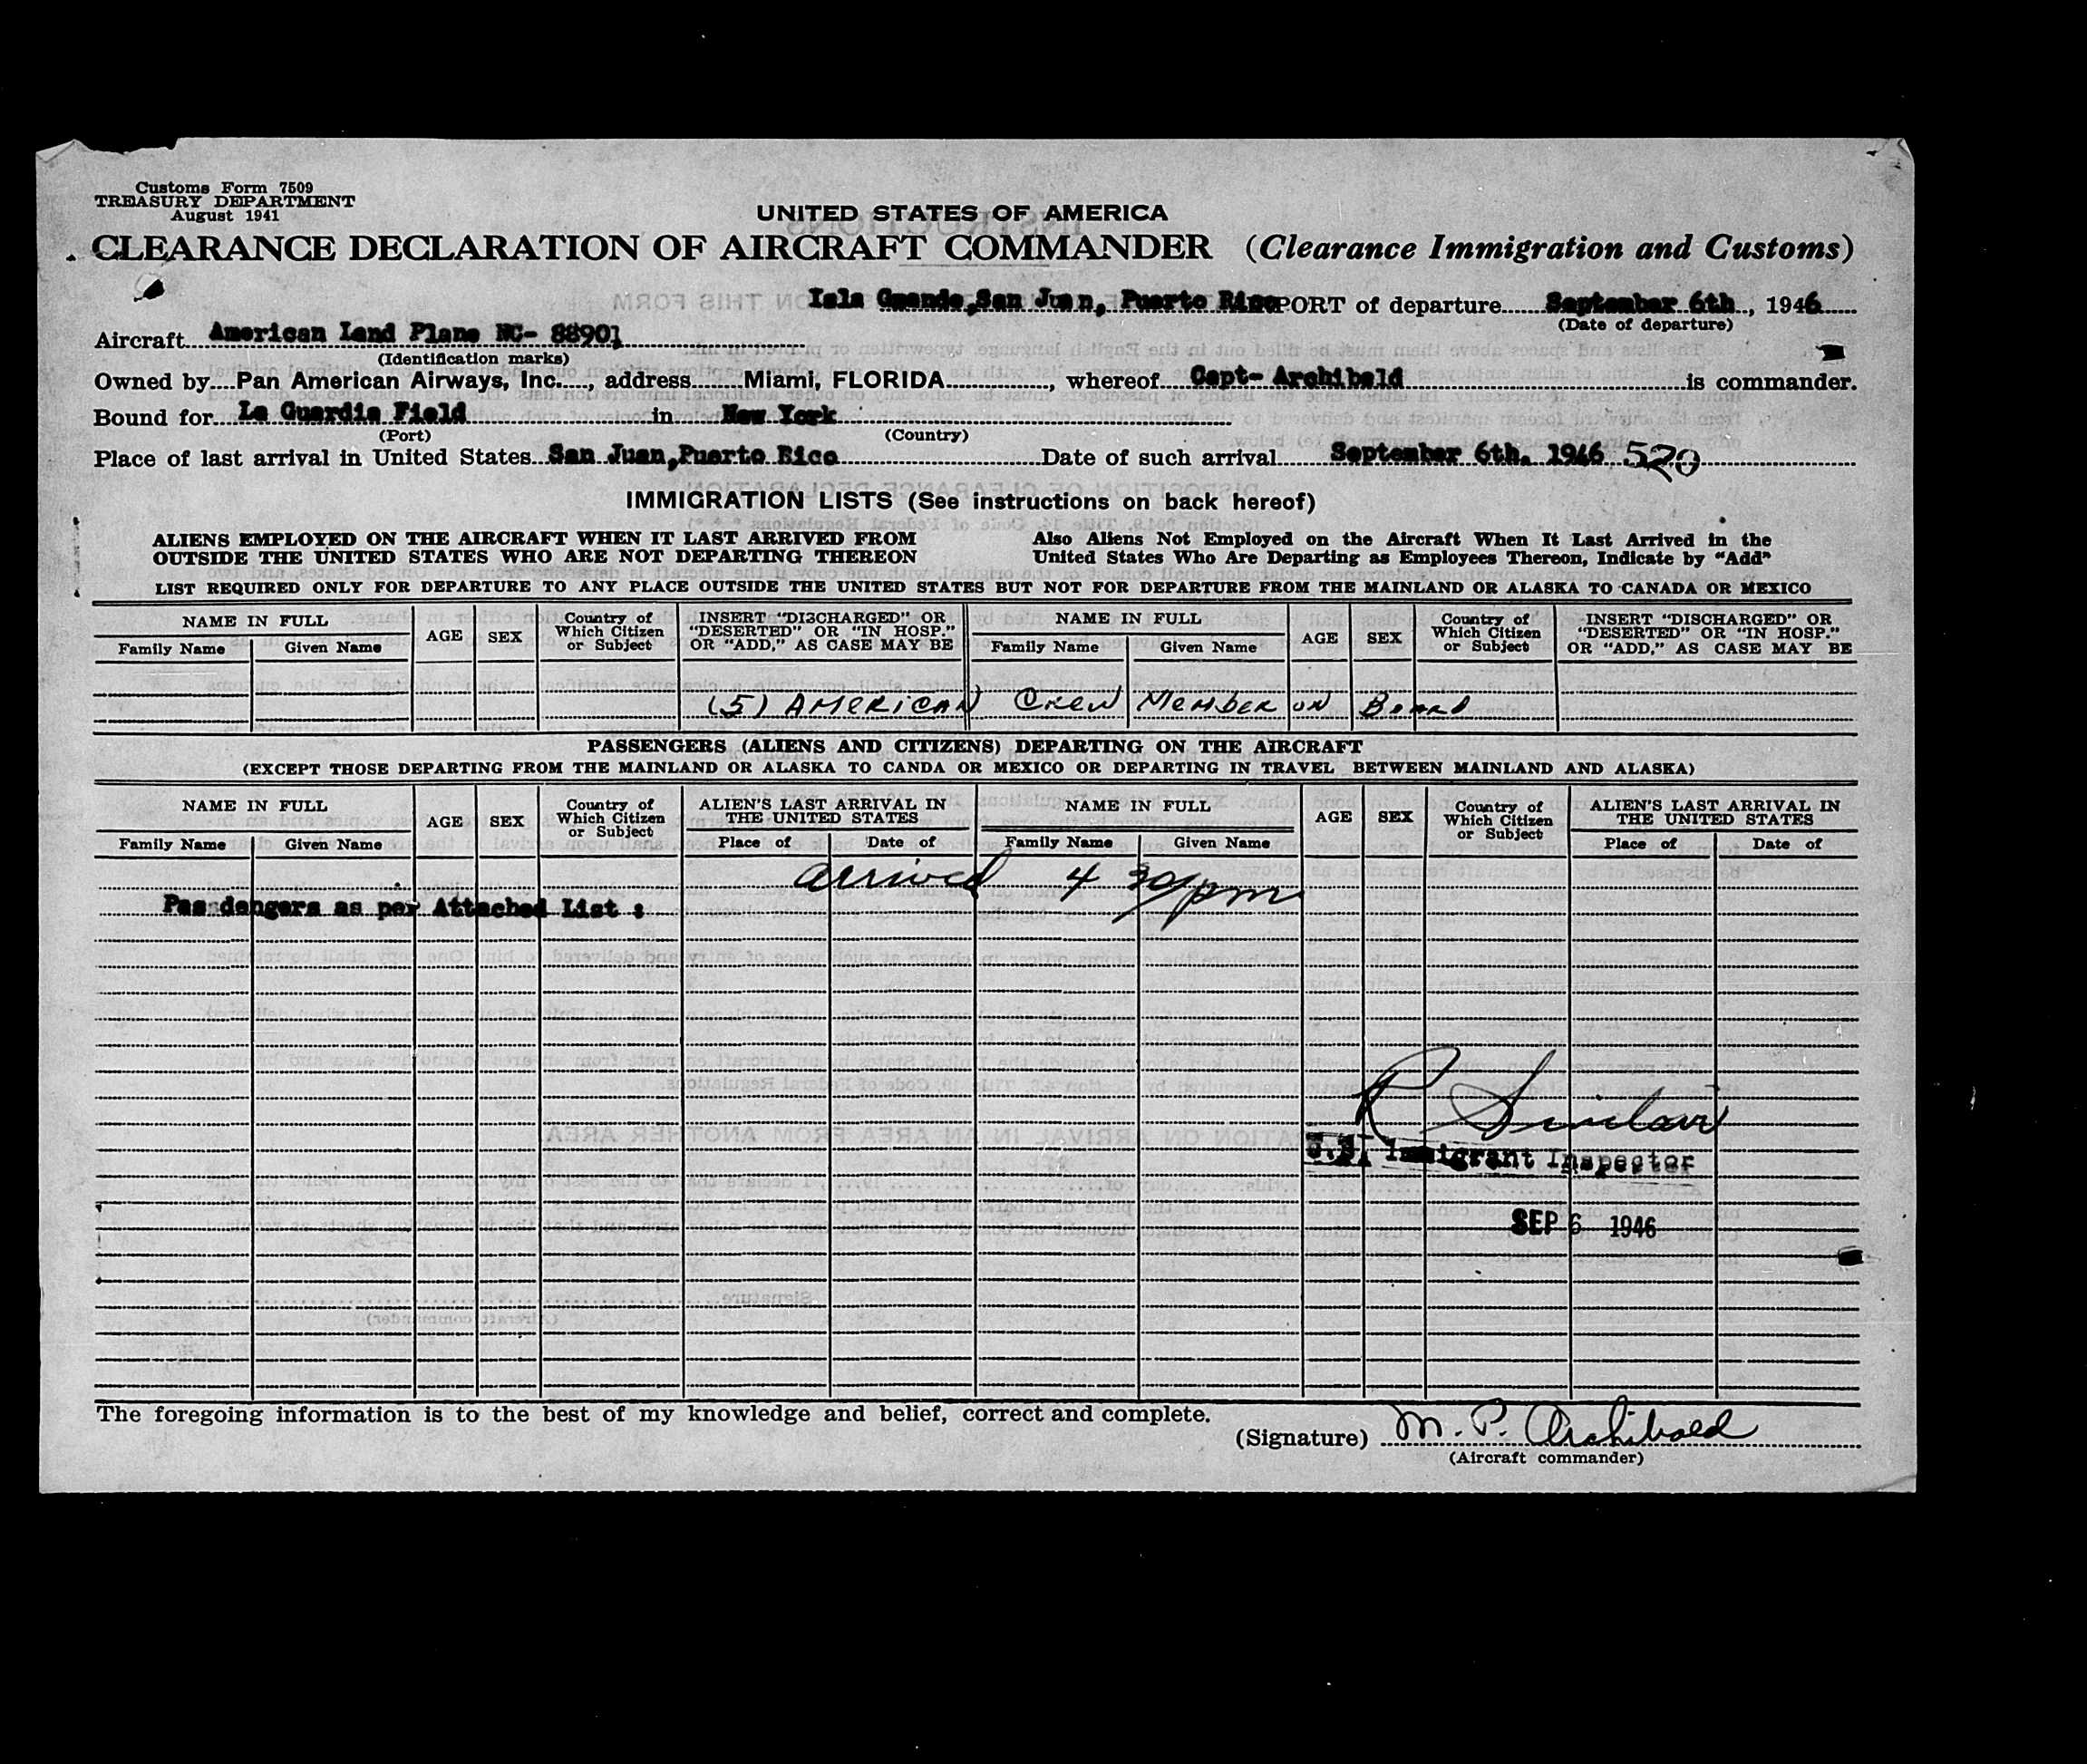 Customs Form 7509
TREASURY DEPARTMENT
August 1941
UNITED STATES OF AMERICA
CLEARANCE DECLARATION OF AIRCRAFT COMMANDER (Clearance Immigration and Customs)
Isla Grande,San Juan, Puerto Rico PORT of departure September 6th, 1946
(Date of departure)
Aircraft American Land Plane NC- 88901
(Identification marks)
Owned by Pan American Airways, Inc., address Miami, FLORIDA, whereof Capt- Archibald is commander.
Bound for La Guardia Field in New York
(Port) (Country)
Place of last arrival in United States San Juan,Puerto Rico Date of such arrival September 6th. 1946 520
IMMIGRATION LISTS (See instructions on back hereof)
ALIENS EMPLOYED ON THE AIRCRAFT WHEN IT LAST ARRIVED FROM
OUTSIDE THE UNITED STATES WHO ARE NOT DEPARTING THEREON
Also Aliens Not Employed on the Aircraft When It Last Arrived in the
United States Who Are Departing as Employees Thereon, Indicate by "Add"
LIST REQUIRED ONLY FOR DEPARTURE TO ANY PLACE OUTSIDE THE UNITED STATES BUT NOT FOR DEPARTURE FROM THE MAINLAND OR ALASKA TO CANADA OR MEXICO
NAME IN FULL
Family Name Given Name
AGE
SEX
Country of
Which Citizen
or Subject
INSERT "DISCHARGED" OR
"DESERTED" OR "IN HOSP."
OR "ADD," AS CASE MAY BE
NAME IN FULL
Family Name Given Name
AGE
SEX
Country of
Which Citizen
or Subject
INSERT "DISCHARGED" OR
"DESERTED" OR "IN HOSP."
OR "ADD," AS CASE MAY BE
(5) AMERICAN CREW MEMBER ON BOARD
PASSENGERS (ALIENS AND CITIZENS) DEPARTING ON THE AIRCRAFT
(EXCEPT THOSE DEPARTING FROM THE MAINLAND OR ALASKA TO CANDA OR MEXICO OR DEPARTING IN TRAVEL BETWEEN MAINLAND AND ALASKA)
NAME IN FULL
Family Name Given Name
AGE
SEX
Country of
Which Citizen
or Subject
ALIEN'S LAST ARRIVAL IN
THE UNITED STATES
Place of Date of
NAME IN FULL
Family Name Given Name
AGE
SEX
Country of
Which Citizen
or Subject
ALIEN'S LAST ARRIVAL IN
THE UNITED STATES
Place of Date of
arrived 4 30/pm
Passdengers as per Attached List :
R Sinclair
U.S. Immigrant Inspector
SEP 6 1946
The foregoing information is to the best of my knowledge and belief, correct and complete.
(Signature) M. P. Archibald
(Aircraft commander)